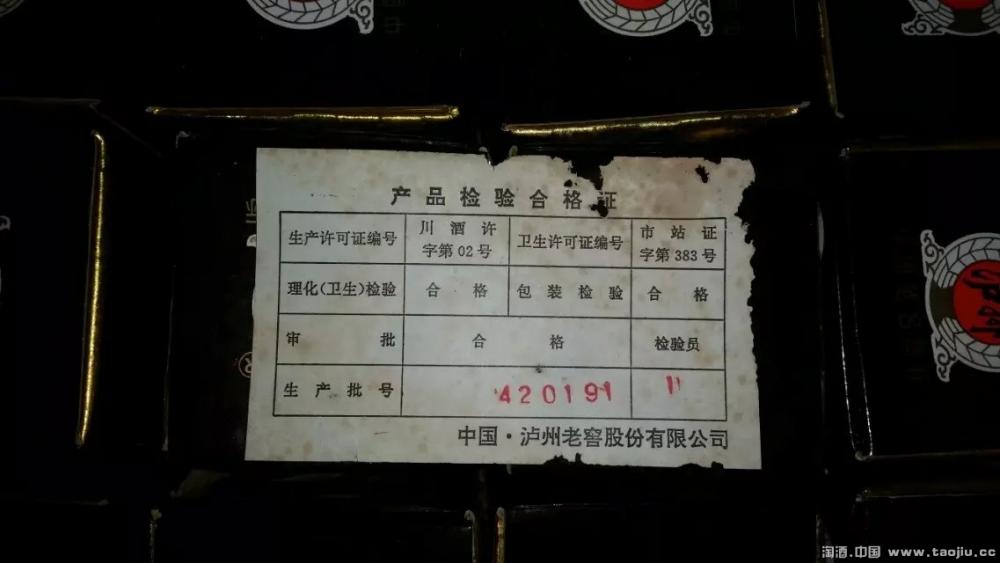 产品检验合格证
生产许可证编号 川酒许字第02号 卫生许可证编号 市站证字第383号
理化(卫生)检验 合格 包装检验 合格
审批 合格 检验员
生产批号 420191 11
中国·泸州老窖股份有限公司
淘酒.中国 www.taojiu.cc